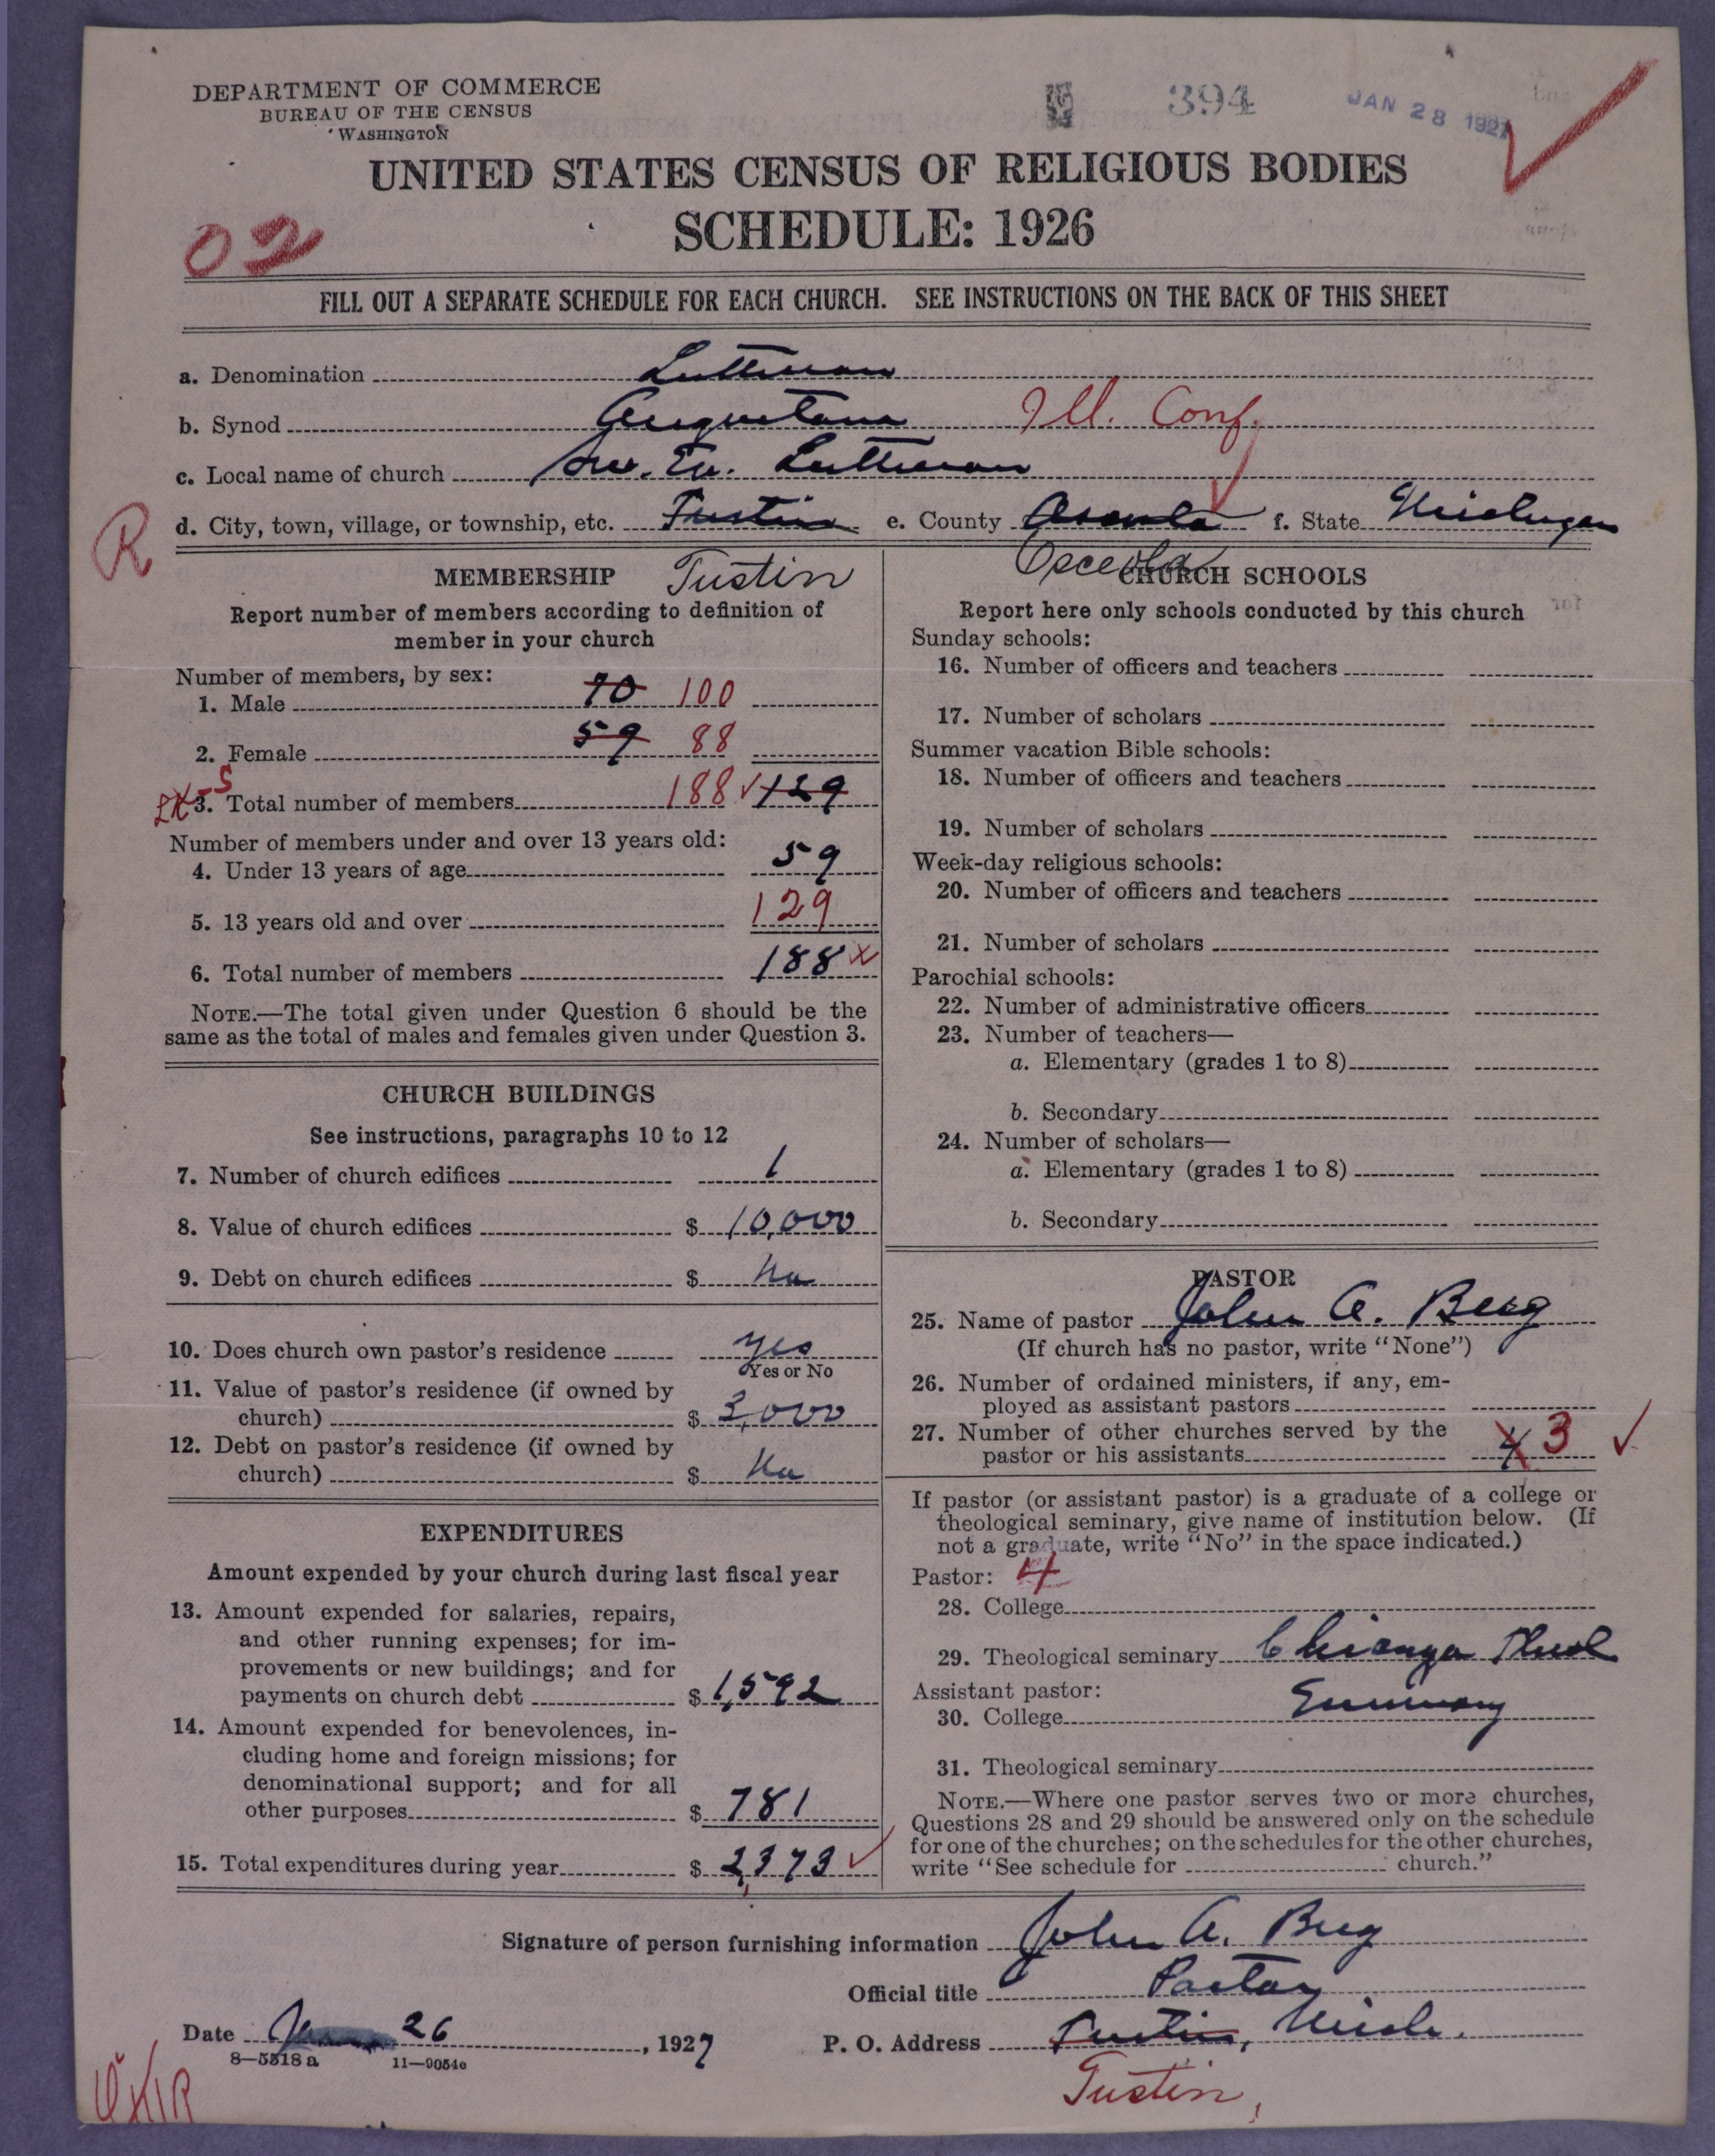 DEPARTMENT OF COMMERCE
BUREAU OF THE CENSUS
WASHINGTON
394
JAN 28 1927
UNITED STATES CENSUS OF RELIGIOUS BODIES
SCHEDULE: 1926
02
FILL OUT A SEPARATE SCHEDULE FOR EACH CHURCH. SEE INSTRUCTIONS ON THE BACK OF THIS SHEET
a. Denomination Lutheran
b. Synod Augustana Ill. Conf.
c. Local name of church Sw. Ev. Lutheran
R
d. City, town, village, or township, etc. Tustin e. County Osceola f. State Michigan
Tustin
Osceola
MEMBERSHIP
Report number of members according to definition of
member in your church
Number of members, by sex:
1. Male 70 100
2. Female 59 88
3. Total number of members 188 129
Number of members under and over 13 years old:
4. Under 13 years of age 59
5. 13 years old and over 129
6. Total number of members 188
NOTE.—The total given under Question 6 should be the
same as the total of males and females given under Question 3.
CHURCH BUILDINGS
See instructions, paragraphs 10 to 12
7. Number of church edifices 1
8. Value of church edifices $ 10,000
9. Debt on church edifices $ No
10. Does church own pastor's residence yes
Yes or No
11. Value of pastor's residence (if owned by
church) $ 3,000
12. Debt on pastor's residence (if owned by
church) $ No
EXPENDITURES
Amount expended by your church during last fiscal year
13. Amount expended for salaries, repairs,
and other running expenses; for im-
provements or new buildings; and for
payments on church debt $ 1,592
14. Amount expended for benevolences, in-
cluding home and foreign missions; for
denominational support; and for all
other purposes $ 781
15. Total expenditures during year $ 2,373
CHURCH SCHOOLS
Report here only schools conducted by this church
Sunday schools:
16. Number of officers and teachers
17. Number of scholars
Summer vacation Bible schools:
18. Number of officers and teachers
19. Number of scholars
Week-day religious schools:
20. Number of officers and teachers
21. Number of scholars
Parochial schools:
22. Number of administrative officers
23. Number of teachers—
a. Elementary (grades 1 to 8)
b. Secondary
24. Number of scholars—
a. Elementary (grades 1 to 8)
b. Secondary
PASTOR
25. Name of pastor John A. Berg
(If church has no pastor, write "None")
26. Number of ordained ministers, if any, em-
ployed as assistant pastors
27. Number of other churches served by the
pastor or his assistants 4 3
If pastor (or assistant pastor) is a graduate of a college or
theological seminary, give name of institution below. (If
not a graduate, write "No" in the space indicated.)
Pastor: 4
28. College
29. Theological seminary Chicago Theol
Assistant pastor:
Seminary
30. College
31. Theological seminary
NOTE.—Where one pastor serves two or more churches,
Questions 28 and 29 should be answered only on the schedule
for one of the churches; on the schedules for the other churches,
write "See schedule for church."
Signature of person furnishing information John A. Berg
Official title Pastor
Date Jan 26, 1927 P. O. Address Tustin, Mich.
8—5518a 11—9054c
Tustin,